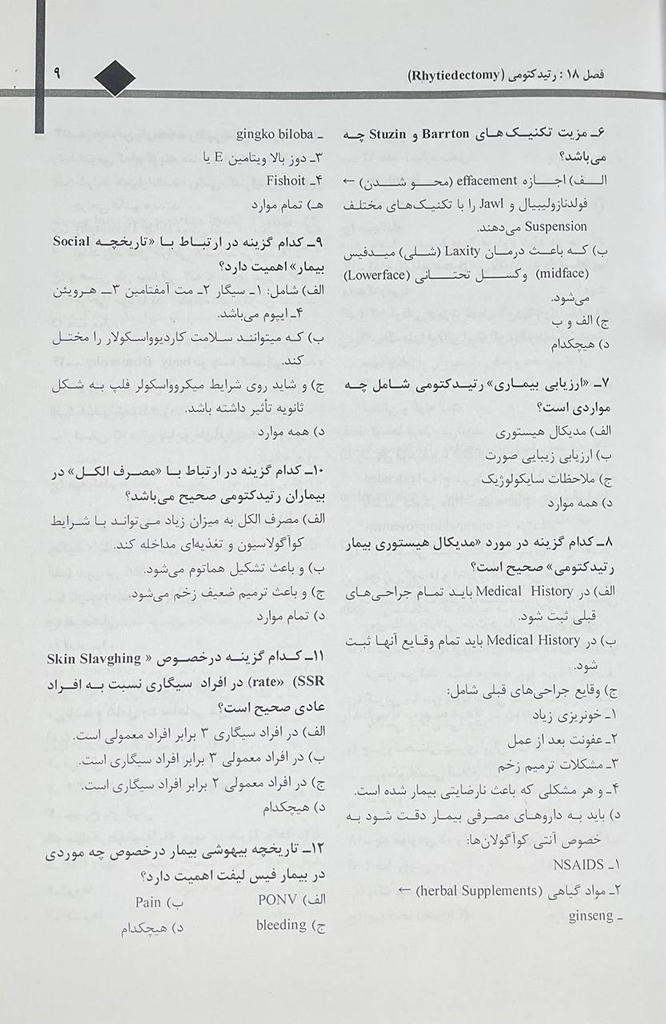 فصل ۱۸: رتیدکتومی (Rhytiedectomy)
۹
۶ـ مزیت تکنیک‌های Barrton و Stuzin چه
می‌باشد؟
الف) اجازه effacement (محو شدن) ←
فولدنازولیبیال و Jawl را با تکنیک‌های مختلف
Suspension می‌دهند.
ب) که باعث درمان Laxity (شلی) میدفیس
(midface) وکسل تحتانی (Lowerface)
می‌شود.
ج) الف و ب
د) هیچکدام
۷ـ «ارزیابی بیماری» رتیدکتومی شامل چه
مواردی است؟
الف) مدیکال هیستوری
ب) ارزیابی زیبایی صورت
ج) ملاحظات سایکولوژیک
د) همه موارد
۸ـ کدام گزینه در مورد «مدیکال هیستوری بیمار
رتیدکتومی» صحیح است؟
الف) در Medical History باید تمام جراحی‌های
قبلی ثبت شود.
ب) در Medical History باید تمام وقایع آنها ثبت
شود.
ج) وقایع جراحی‌های قبلی شامل:
۱ـ خونریزی زیاد
۲ـ عفونت بعد از عمل
۳ـ مشکلات ترمیم زخم
۴ـ و هر مشکلی که باعث نارضایتی بیمار شده است.
د) باید به داروهای مصرفی بیمار دقت شود به
خصوص آنتی کوآگولان‌ها:
۱ـ NSAIDS
۲ـ مواد گیاهی (herbal Supplements) ←
ـ ginseng
ـ gingko biloba
۳ـ دوز بالا ویتامین E یا
۴ـ Fishoit
هـ) تمام موارد
۹ـ کدام گزینه در ارتباط با «تاریخچه Social
بیمار» اهمیت دارد؟
الف) شامل: ۱ـ سیگار ۲ـ مت آمفتامین ۳ـ هروئین
۴ـ ایپوم می‌باشد.
ب) که میتوانند سلامت کاردیوواسکولار را مختل
کند.
ج) و شاید روی شرایط میکروواسکولر فلپ به شکل
ثانویه تأثیر داشته باشد.
د) همه موارد
۱۰ـ کدام گزینه در ارتباط با «مصرف الکل» در
بیماران رتیدکتومی صحیح می‌باشد؟
الف) مصرف الکل به میزان زیاد می‌تواند با شرایط
کوآگولاسیون و تغذیه‌ای مداخله کند.
ب) و باعث تشکیل هماتوم می‌شود.
ج) و باعث ترمیم ضعیف زخم می‌شود.
د) تمام موارد
۱۱ـ کدام گزینه درخصوص « Skin Slavghing
rate» (SSR) در افراد سیگاری نسبت به افراد
عادی صحیح است؟
الف) در افراد سیگاری ۳ برابر افراد معمولی است.
ب) در افراد معمولی ۳ برابر افراد سیگاری است.
ج) در افراد معمولی ۲ برابر افراد سیگاری است.
د) هیچکدام
۱۲ـ تاریخچه بیهوشی بیمار درخصوص چه موردی
در بیمار فیس لیفت اهمیت دارد؟
الف) PONV ب) Pain
ج) bleeding د) هیچکدام